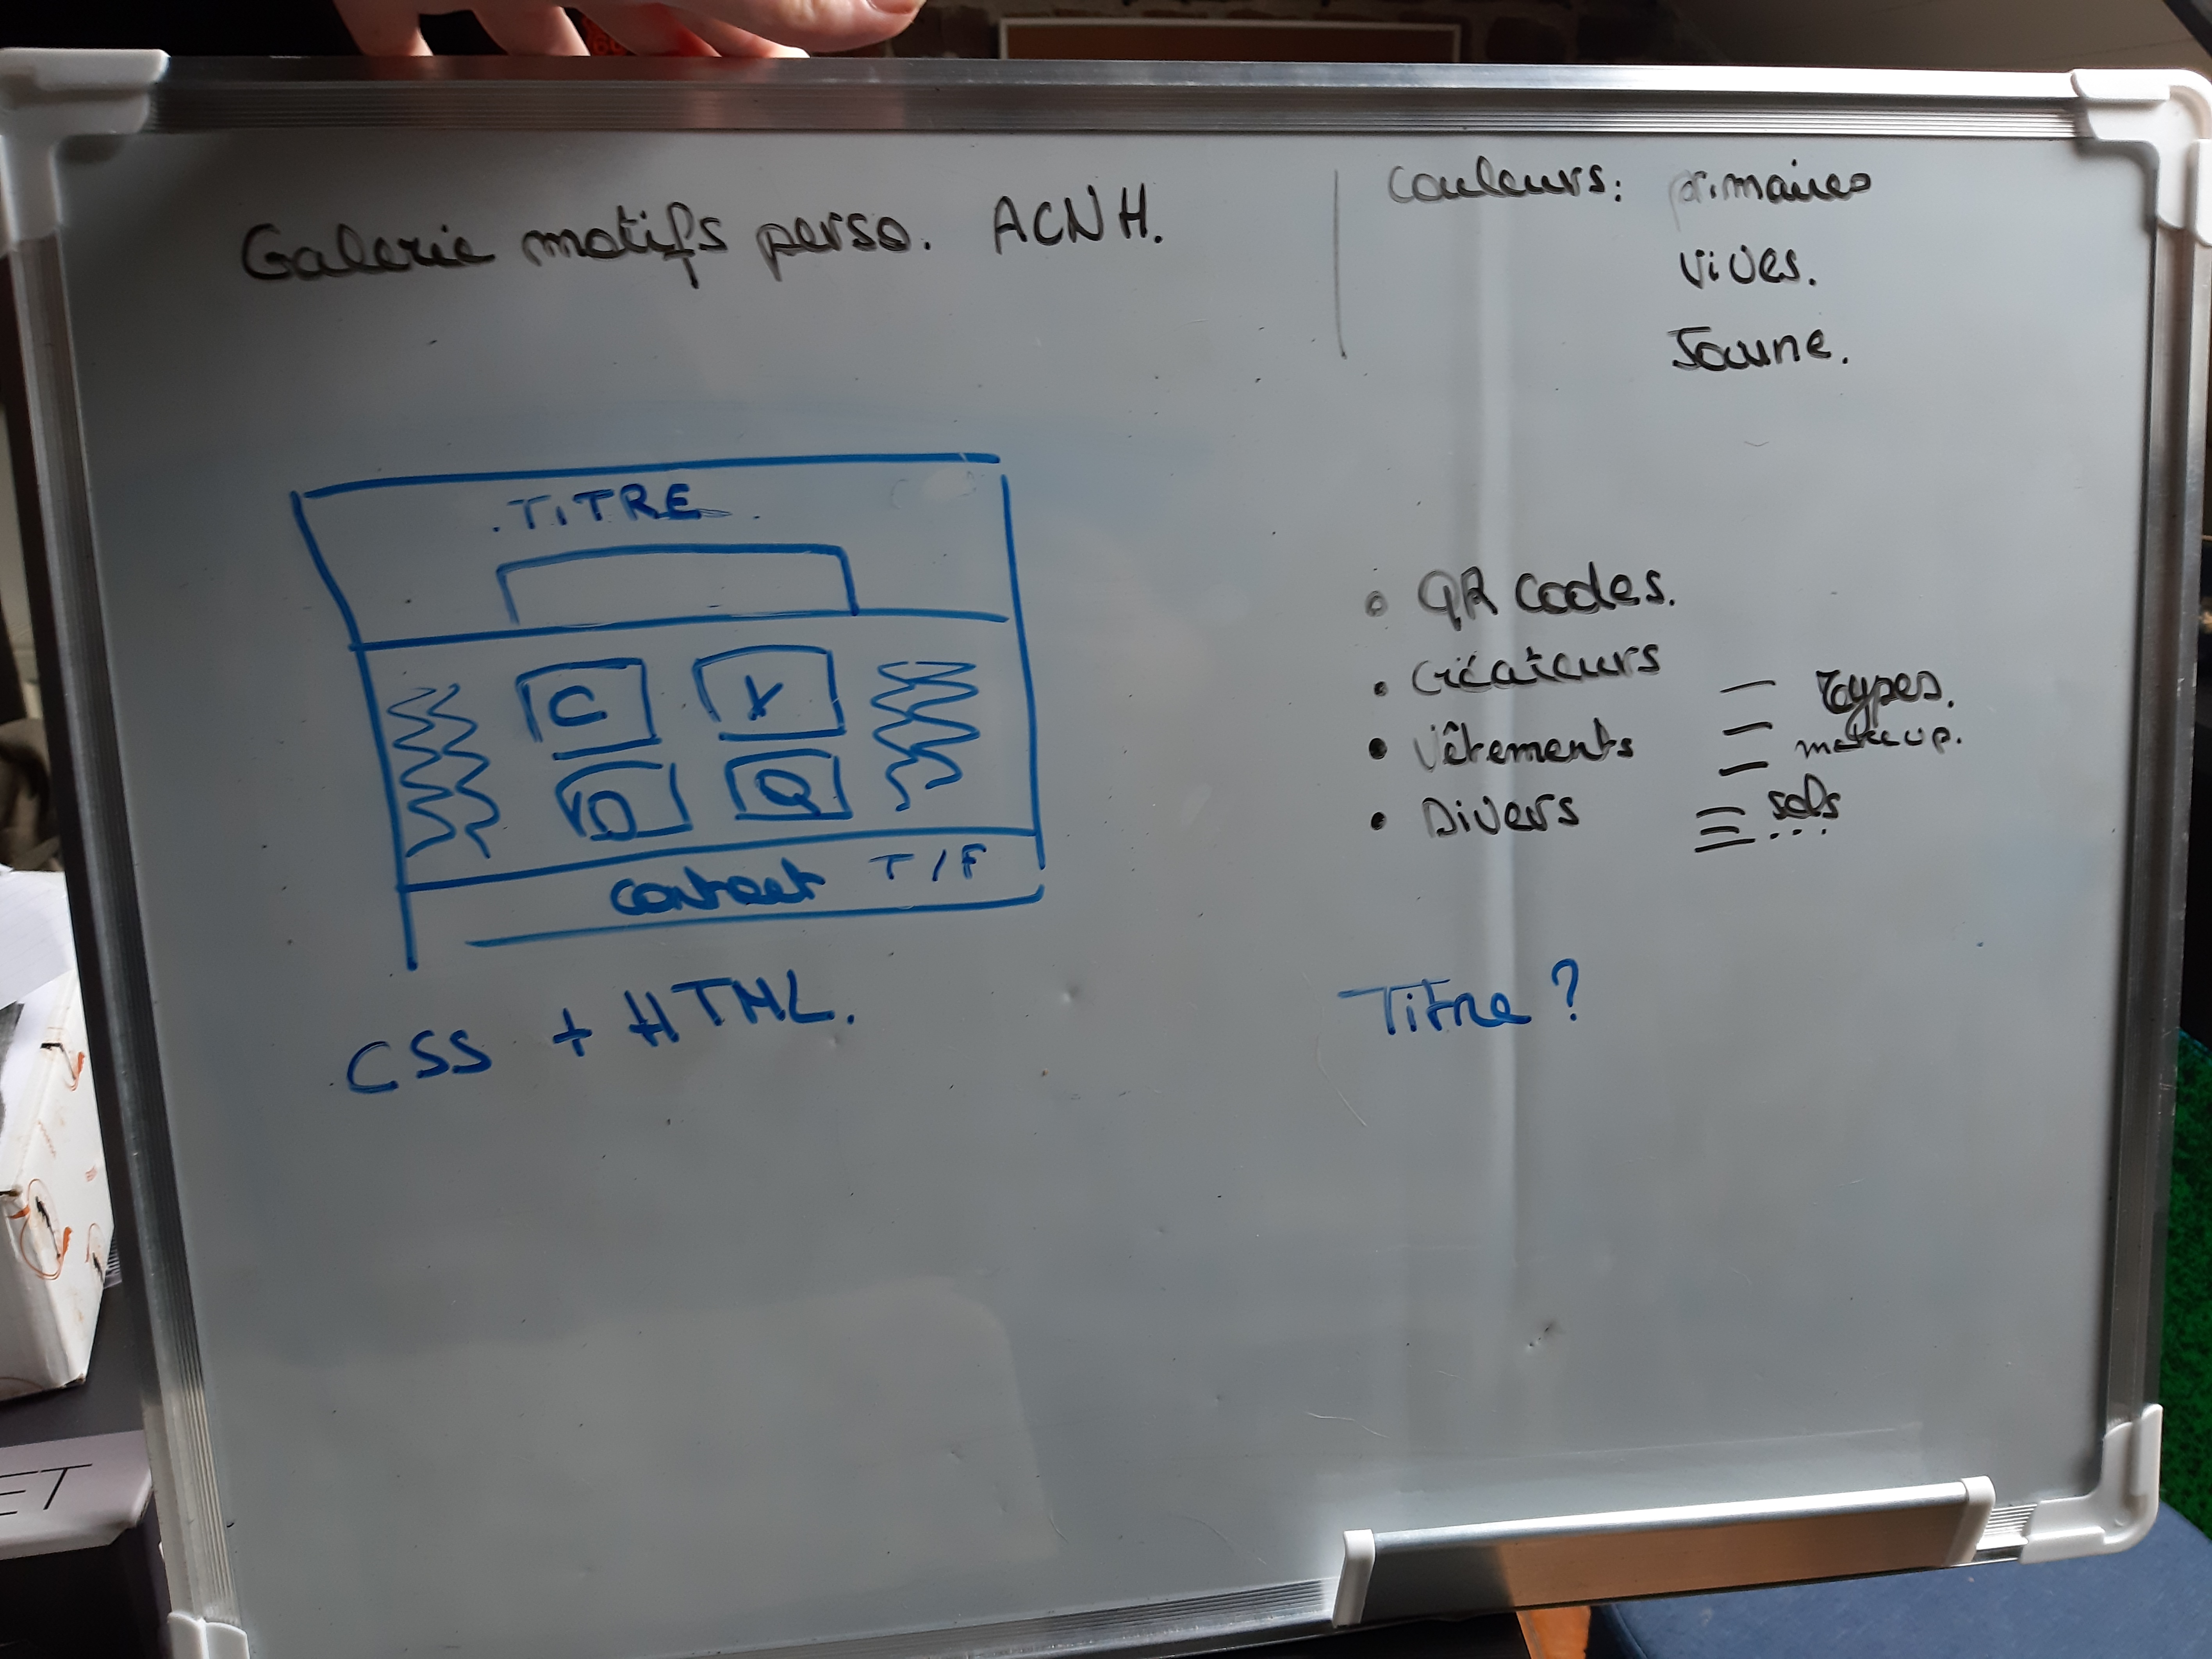 Galerie motifs perso. ACNH.
Couleurs: primaires
vives.
Jaune.
TITRE
C
D Q
Contact T/F
CSS + HTML.
QR codes.
Créateurs
Vêtements
Divers
Types.
makeup.
sols
...
Titre ?
ET